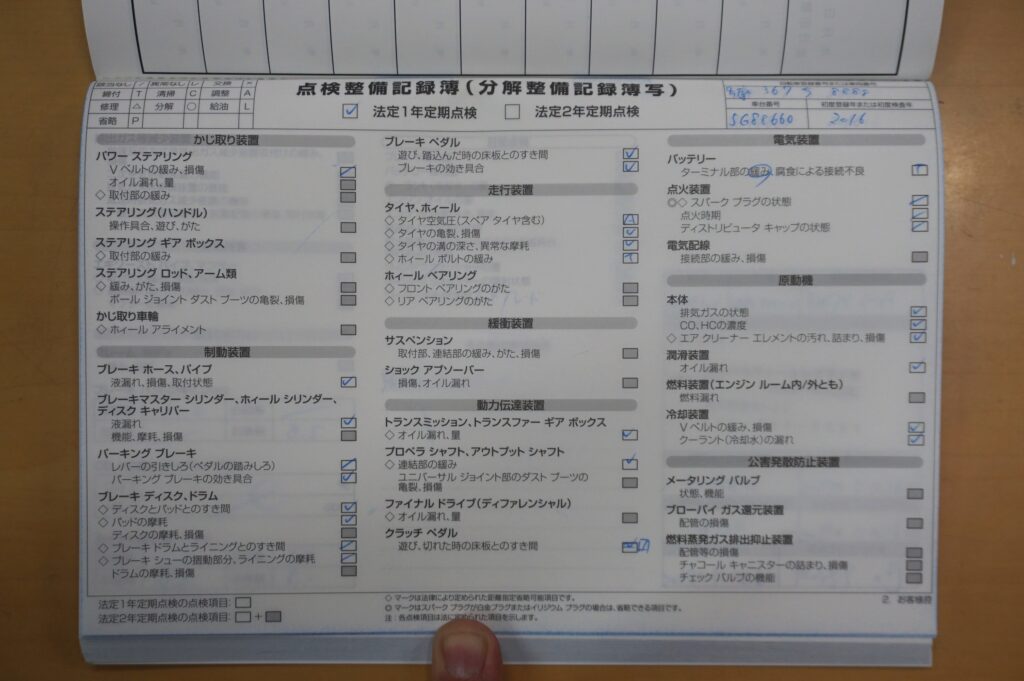 該当なし ／ 異常なし レ 交換 ×
締付 T 清掃 C 調整 A
修理 △ 分解 ○ 給油 L
省略 P
点検整備記録簿(分解整備記録簿写)
法定1年定期点検 法定2年定期点検
車台番号 初度登録年または初度検査年
2016
かじ取り装置
パワー ステアリング
V ベルトの緩み、損傷
オイル漏れ、量
◇ 取付部の緩み
ステアリング(ハンドル)
操作具合、遊び、がた
ステアリング ギア ボックス
◇ 取付部の緩み
ステアリング ロッド、アーム類
◇ 緩み、がた、損傷
ボール ジョイント ダスト ブーツの亀裂、損傷
かじ取り車輪
◇ ホィール アライメント
制動装置
ブレーキ ホース、パイプ
液漏れ、損傷、取付状態
ブレーキマスター シリンダー、ホィール シリンダー、
ディスク キャリパー
液漏れ
機能、摩耗、損傷
パーキング ブレーキ
レバーの引きしろ(ペダルの踏みしろ)
パーキング ブレーキの効き具合
ブレーキ ディスク、ドラム
◇ ディスクとパッドとのすき間
◇ パッドの摩耗
ディスクの摩耗、損傷
◇ ブレーキ ドラムとライニングとのすき間
◇ ブレーキ シューの摺動部分、ライニングの摩耗
ドラムの摩耗、損傷
ブレーキ ペダル
遊び、踏込んだ時の床板とのすき間
ブレーキの効き具合
走行装置
タイヤ、ホィール
◇ タイヤ空気圧(スペア タイヤ含む)
A
◇ タイヤの亀裂、損傷
◇ タイヤの溝の深さ、異常な摩耗
◇ ホィール ボルトの緩み
T
ホィール ベアリング
◇ フロント ベアリングのがた
◇ リア ベアリングのがた
緩衝装置
サスペンション
取付部、連結部の緩み、がた、損傷
ショック アブソーバー
損傷、オイル漏れ
動力伝達装置
トランスミッション、トランスファー ギア ボックス
◇ オイル漏れ、量
プロペラ シャフト、アウトプット シャフト
◇ 連結部の緩み
ユニバーサル ジョイント部のダスト ブーツの
亀裂、損傷
ファイナル ドライブ(ディファレンシャル)
◇ オイル漏れ、量
クラッチ ペダル
遊び、切れた時の床板とのすき間
電気装置
バッテリー
ターミナル部の緩み、腐食による接続不良
T
点火装置
◎◇ スパーク プラグの状態
点火時期
ディストリビュータ キャップの状態
電気配線
接続部の緩み、損傷
原動機
本体
排気ガスの状態
CO、HCの濃度
◇ エア クリーナー エレメントの汚れ、詰まり、損傷
潤滑装置
オイル漏れ
燃料装置(エンジン ルーム内/外とも)
燃料漏れ
冷却装置
V ベルトの緩み、損傷
クーラント(冷却水)の漏れ
公害発散防止装置
メータリング バルブ
状態、機能
ブローバイ ガス還元装置
配管の損傷
燃料蒸発ガス排出抑止装置
配管等の損傷
チャコール キャニスターの詰まり、損傷
チェック バルブの機能
法定1年定期点検の点検項目:
法定2年定期点検の点検項目: +
◇ マークは法律により定められた距離指定省略可能項目です。
◎ マークはスパーク プラグが白金プラグまたはイリジウム プラグの場合は、省略できる項目です。
注:各点検項目は法に定められた項目を示します。
2. お客様控